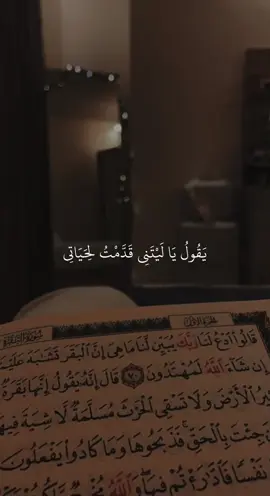 يَقُولُ يَا لَيْتَنِى قَدَّمْتُ لِحَيَاتِى
قَالُوا ادْعُ لَنَا رَبَّكَ يُبَيِّن لَّنَا مَا هِىَ إِنَّ الْبَقَرَ تَشَابَهَ عَلَيْنَا
إِن شَآءَ اللَّهُ لَمُهْتَدُونَ قَالَ إِنَّهُ يَقُولُ إِنَّهَا بَقَرَةٌ
الْأَرْضَ وَلَا تَسْقِى الْحَرْثَ مُسَلَّمَةٌ لَّا شِيَةَ فِيهَا
جِئْتَ بِالْحَقِّ فَذَبَحُوهَا وَمَا كَادُوا يَفْعَلُونَ
نَفْسًا فَادَّارَأْتُمْ فِيهَا وَاللَّهُ مُخْرِجٌ